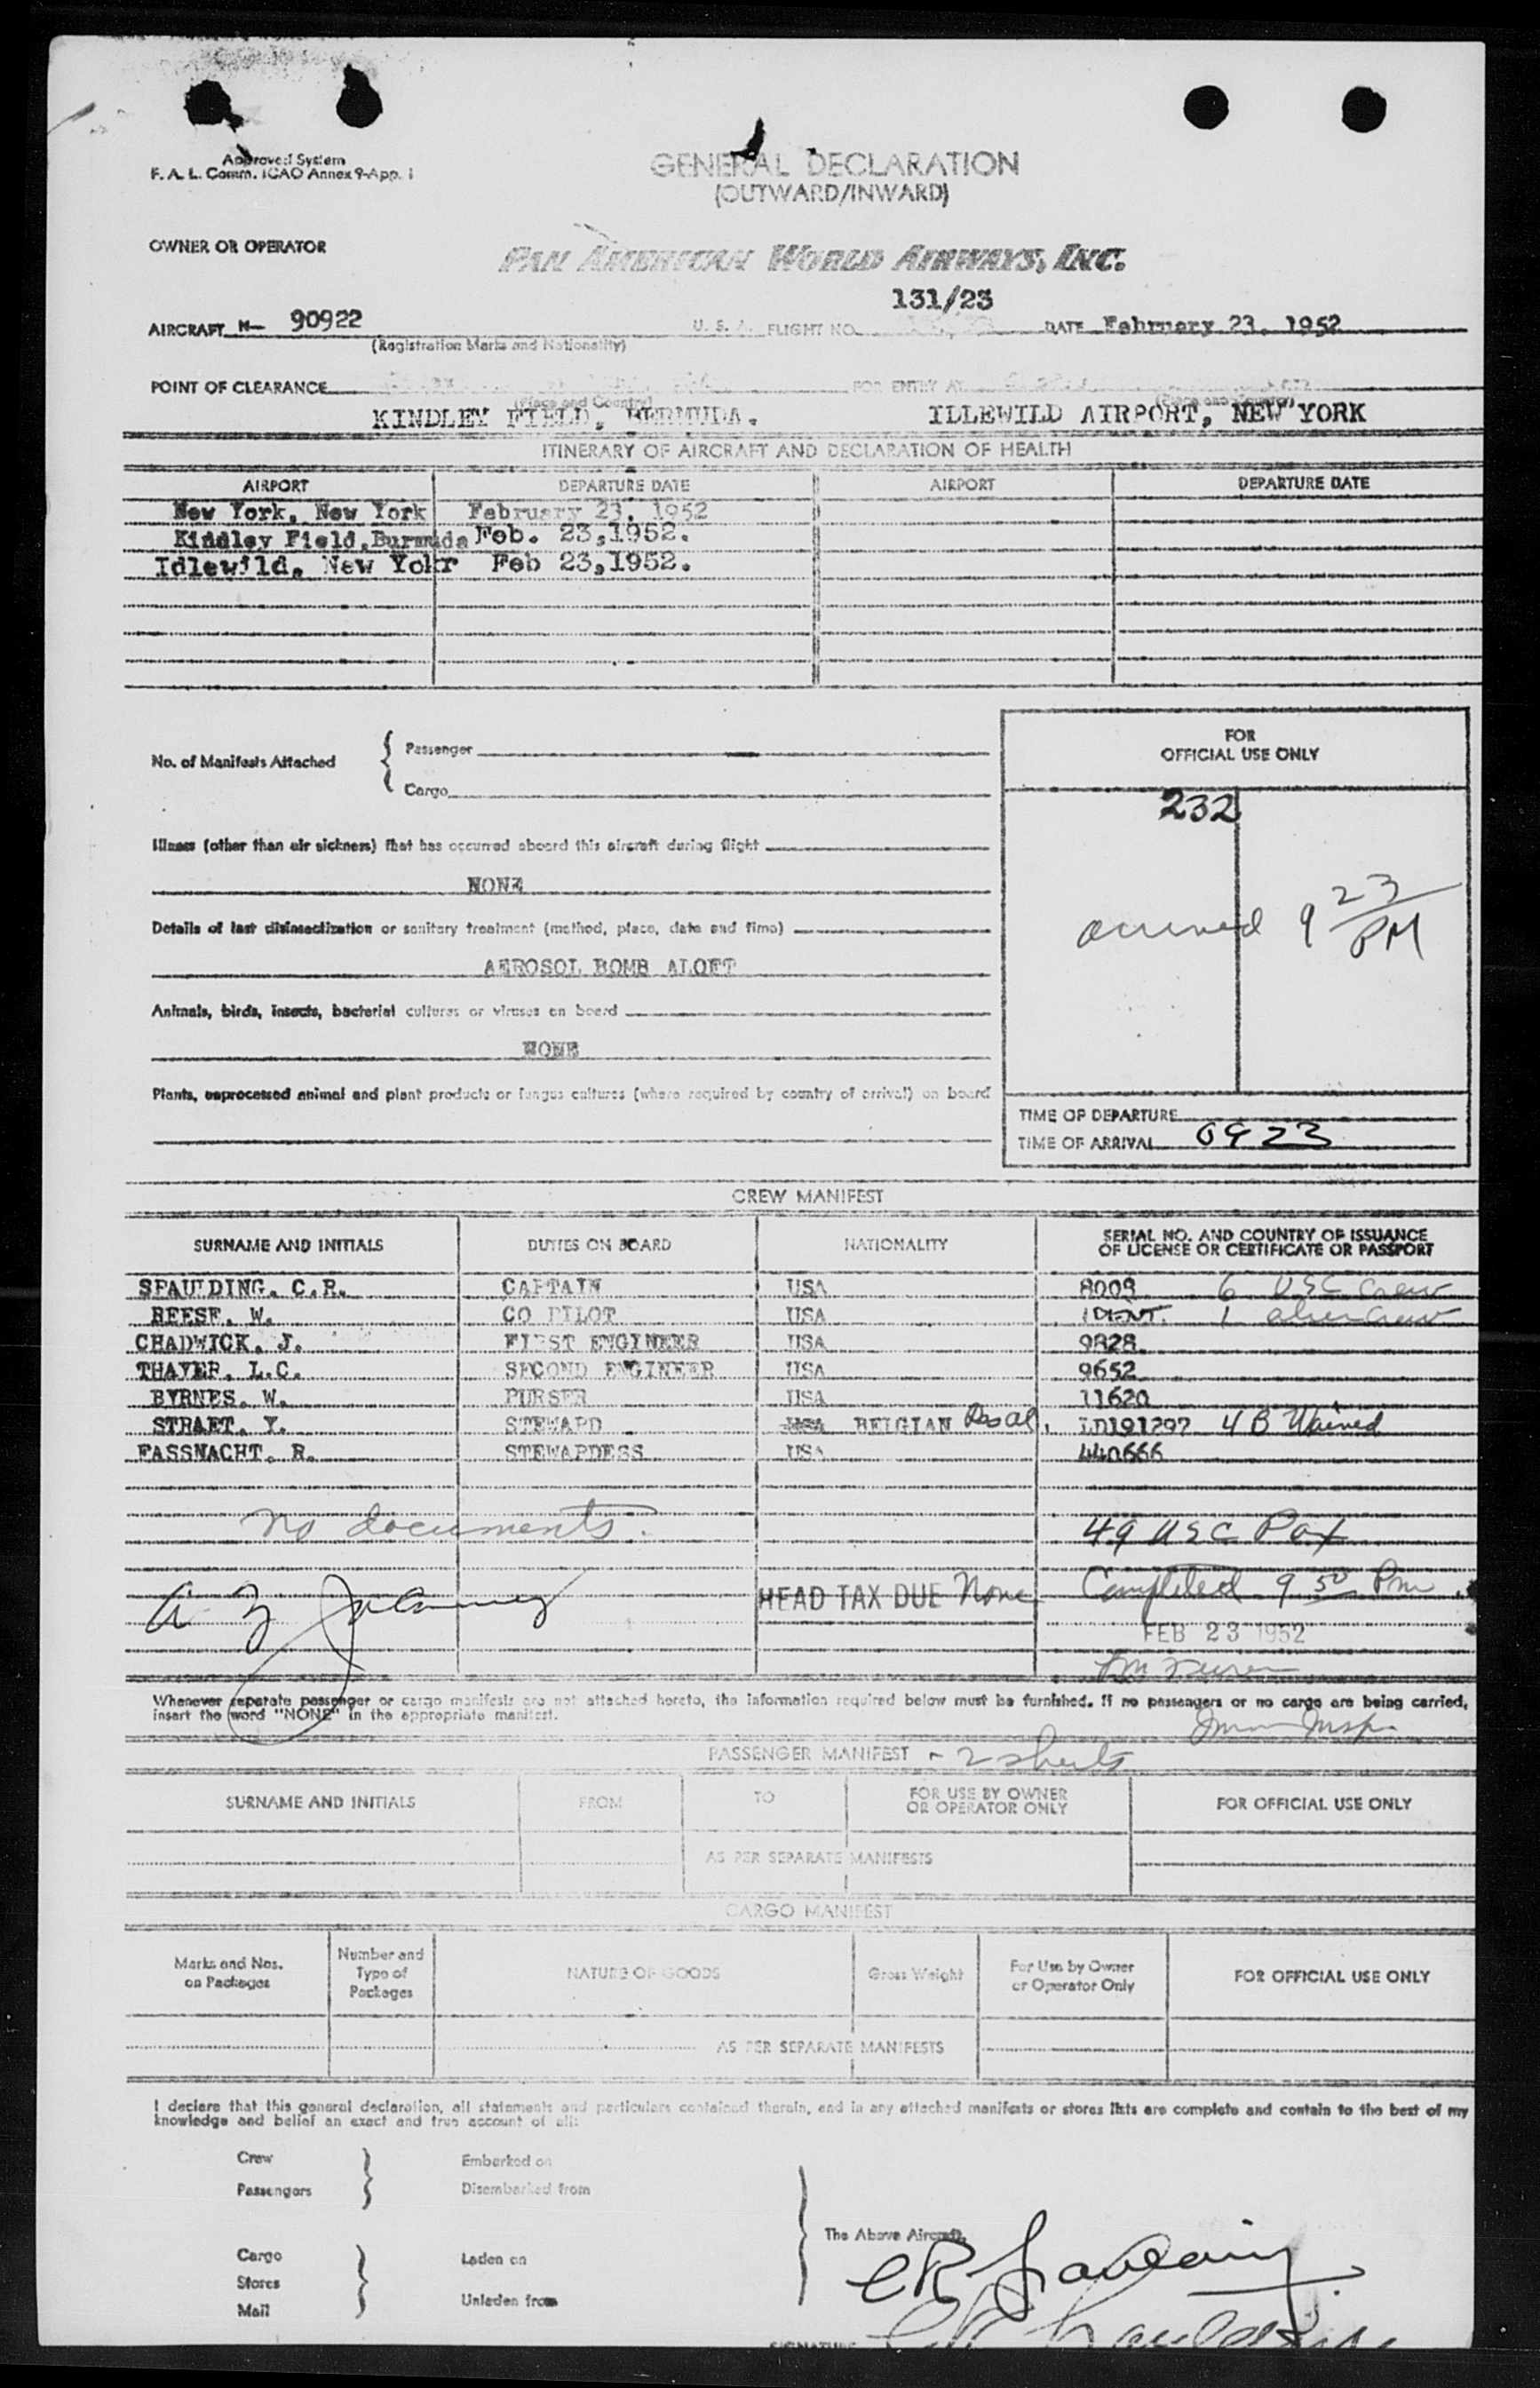 Approved System
F. A. L. Comm. ICAO Annex 9-App. 1
GENERAL DECLARATION
(OUTWARD/INWARD)
OWNER OR OPERATOR
PAN AMERICAN WORLD AIRWAYS, INC.
131/23
AIRCRAFT N- 90922 U. S. A. FLIGHT NO. DATE February 23, 1952
(Registration Marks and Nationality)
POINT OF CLEARANCE FOR ENTRY AT
(Place and Country) (Place and Country)
KINDLEY FIELD, BERMUDA. ILLEWILD AIRPORT, NEW YORK
ITINERARY OF AIRCRAFT AND DECLARATION OF HEALTH
AIRPORT DEPARTURE DATE AIRPORT DEPARTURE DATE
New York, New York February 23, 1952
Kindley Field, Burmuda Feb. 23,1952.
Idlewild, New Yohr Feb 23,1952.
FOR
OFFICIAL USE ONLY
No. of Manifests Attached { Passenger
Cargo
232
Illness (other than air sickness) that has occurred aboard this aircraft during flight
NONE
arrived 9 23/PM
Details of last disinsectization or sanitary treatment (method, place, date and time)
AEROSOL BOMB ALOFT
Animals, birds, insects, bacterial cultures or viruses on board
NONE
Plants, unprocessed animal and plant products or fungus cultures (where required by country of arrival) on board
TIME OF DEPARTURE
TIME OF ARRIVAL 0923
CREW MANIFEST
SURNAME AND INITIALS DUTIES ON BOARD NATIONALITY SERIAL NO. AND COUNTRY OF ISSUANCE
OF LICENSE OR CERTIFICATE OR PASSPORT
SPAULDING, C.R. CAPTAIN USA 8009 6 USC Crew
REESE, W. CO PILOT USA IDENT. 1 alien Crew
CHADWICK, J. FIRST ENGINEER USA 9828
THAYER, L.C. SECOND ENGINEER USA 9652
BYRNES, W. PURSER USA 11620
STRAET, Y. STEWARD USA BELGIAN LD191297 4 B Waived
FASSNACHT, R. STEWARDESS USA 440666
no documents.
49 USC Pax
HEAD TAX DUE None Completed 9 50 Pm
FEB 23 1952
Whenever separate passenger or cargo manifests are not attached hereto, the information required below must be furnished. If no passengers or no cargo are being carried,
insert the word "NONE" in the appropriate manifest.
Imm Insp.
PASSENGER MANIFEST - 2 sheets
SURNAME AND INITIALS FROM TO FOR USE BY OWNER
OR OPERATOR ONLY FOR OFFICIAL USE ONLY
AS PER SEPARATE MANIFESTS
CARGO MANIFEST
Marks and Nos.
on Packages Number and
Type of
Packages NATURE OF GOODS Gross Weight For Use by Owner
or Operator Only FOR OFFICIAL USE ONLY
AS PER SEPARATE MANIFESTS
I declare that this general declaration, all statements and particulars contained therein, and in any attached manifests or stores lists are complete and contain to the best of my
knowledge and belief an exact and true account of all:
Crew Embarked on
Passengers Disembarked from
The Above Aircraft.
CR Spaulding
Cargo Laden on
Stores
Mail Unladen from
SIGNATURE CR Spaulding